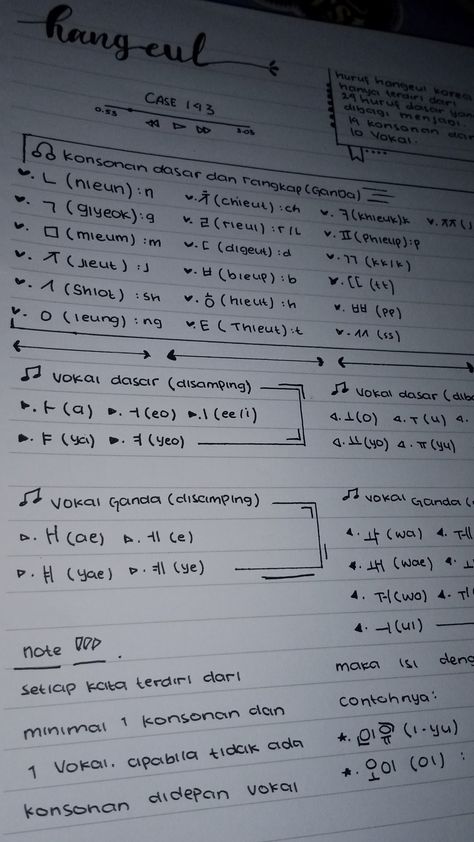 hangeul
huruf hangeul korea
hanya terdiri dari
24 huruf dasar yan
dibagi menjadi:
14 konsonan dan
10 vokal.
CASE 143
0.53
3.03
konsonan dasar dan rangkap (Ganda)
ㄴ (nieun) : n
ㄱ (giyeok) : g
ㅁ (mieum) : m
ㅈ (Jieut) : J
ㅅ (Shiot) : sh
ㅇ (ieung) : ng
ㅊ (chieut) : ch
ㄹ (rieul) : r/L
ㄷ (digeut) : d
ㅂ (bieup) : b
ㅎ (hieut) : h
ㅌ (Thieut) : t
ㅋ (khieuk) k
ㅍ (phieup) : p
ㄲ (kk/k)
ㄸ (tt)
ㅃ (pp)
ㅆ (ss)
ㅉ (J
vokal dasar (disamping)
ㅏ (a) ㅓ (eo) ㅣ (ee/i)
ㅑ (ya) ㅕ (yeo)
vokal dasar (diba
ㅗ (o) ㅜ (u)
ㅛ (yo) ㅠ (yu)
vokal Ganda (disamping)
ㅐ (ae) ㅔ (e)
ㅒ (yae) ㅖ (ye)
vokal Ganda (
ㅘ (wa) ㅞ
ㅙ (wae)
ㅝ (wo) ㅟ
ㅢ (ui)
note
setiap kata terdiri dari
minimal 1 konsonan dan
1 vokal. apabila tidak ada
konsonan didepan vokal
maka isi deng
contohnya:
*. 이유 (i-yu)
*. 오이 (oi) :